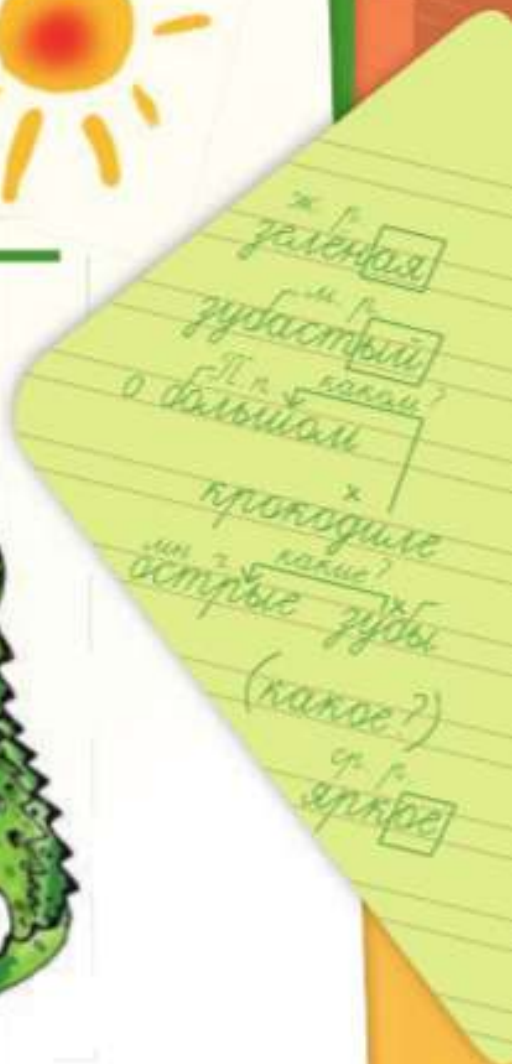 ж р.
зелёная
м. р.
зубастый
П. п. каком?
о большом
х
крокодиле
мн. ч. какие? х
острые зубы
(какое?)
ср. р.
яркое